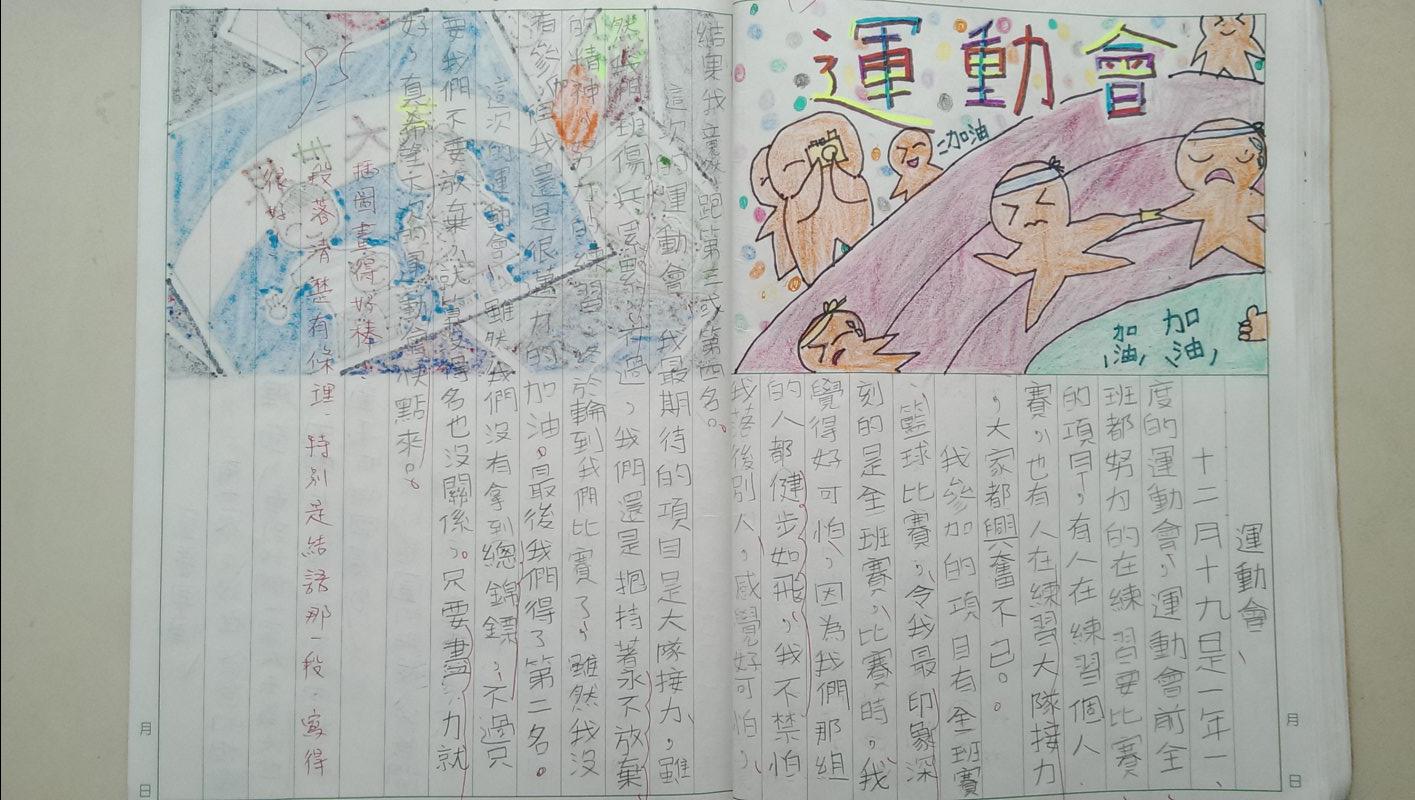 運動會
加油
加油
加油
運動會
十二月十九日是一年一
度的運動會，運動會前全
班都努力的在練習要比賽
的項目，有人在練習個人
賽，也有人在練習大隊接力
，大家都興奮不已。
我參加的項目有全班賽
、籃球比賽，令我最印象深
刻的是全班賽，比賽時，我
覺得好可怕，因為我們那組
的人都健步如飛，我不禁怕
我落後別人，感覺好可怕，
結果我竟然跑第三或第四名。
這次的運動會，我最期待的項目是大隊接力，雖
然我們班傷兵累累，不過，我們還是抱持著永不放棄
的精神，努力的練習，終於輪到我們比賽了，雖然我沒
有參加，但我還是很努力的加油。最後我們得了第二名。
這次的運動會，雖然我們沒有拿到總錦鏢，不過只
要我們不要放棄，就算沒得名也沒關係。只要盡力就
好，真希望下次的運動會快點來。
95
插圖畫得好棒
段落清楚有條理，特別是結語那一段，寫得
很好。
月
日
月
日